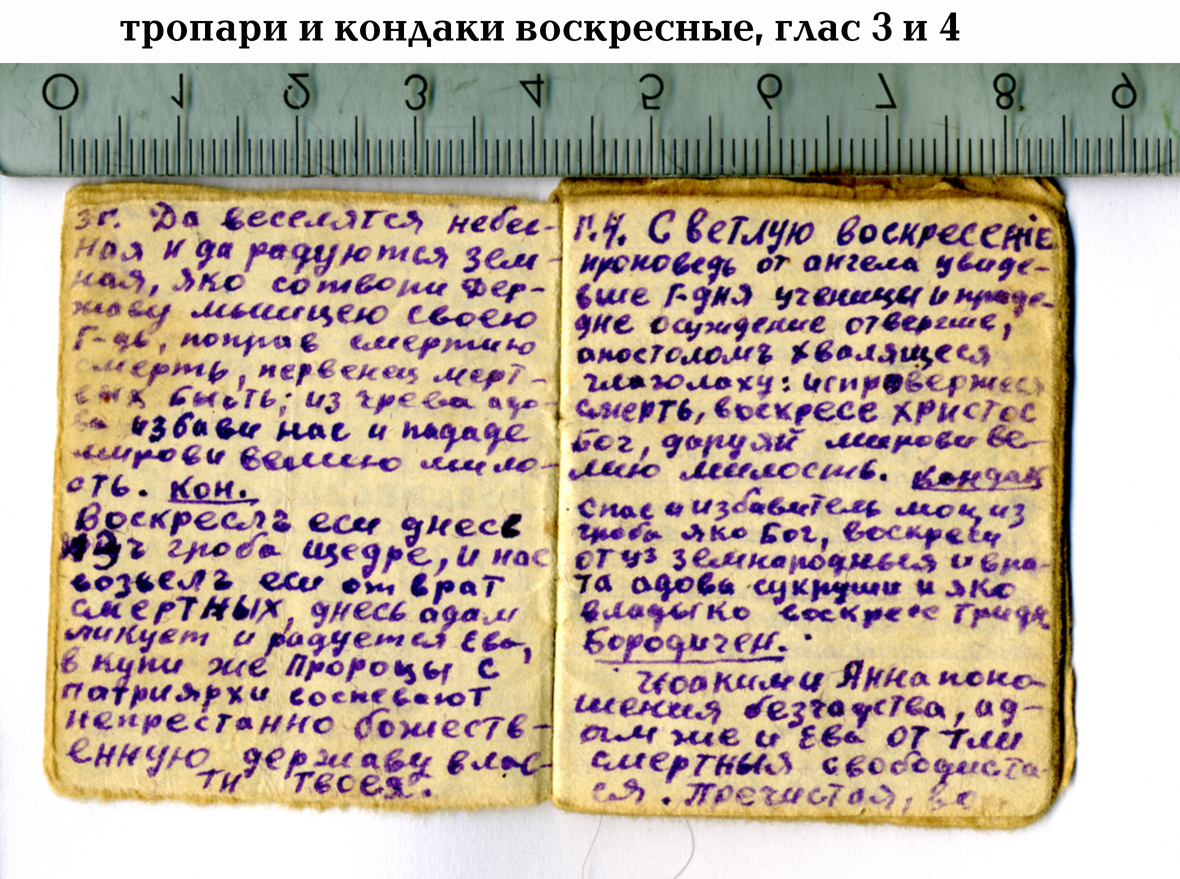 тропари и кондаки воскресные, глас 3 и 4
0 1 2 3 4 5 6 7 8 9
3г. Да веселятся небес-
ная и да радуются зем-
ная, яко сотвори дер-
жаву мышцею своею
Г-дь, поправ смертию
смерть, первенец мерт-
вых бысть; из чрева адо-
ва избави нас и пададе
мирови велию мило-
сть. Кон.
Воскреслъ еси днесь
изъ гроба щедре, и нас
возвелъ еси от врат
смертных, днесь адам
ликует и радуется Ева,
в купи же Пророцы с
патриярхи воспевают
непрестанно божеств-
енную державу влас-
ти твоея.
Г.4. Светлую воскресенiе
проповедь от ангела увиде-
вше Г-дня ученицы и праде-
дне осуждение отвергше,
апостоломъ хвалящеся
глаголаху: испровержеся
смерть, воскресе христос
Бог, даруяй мирови ве-
лию милость. Кондак
Спас и избавитель мои, из
гроба яко Бог, воскреси
от уз земнародныя и вра-
та адовы сукруши и яко
владыко воскресе Тридн
Бородичен.
Иоаким и Янна поно-
шения безчадства, ад-
ам же и Ева от тли
смертныя свободиста-
ся. Пречистая, во